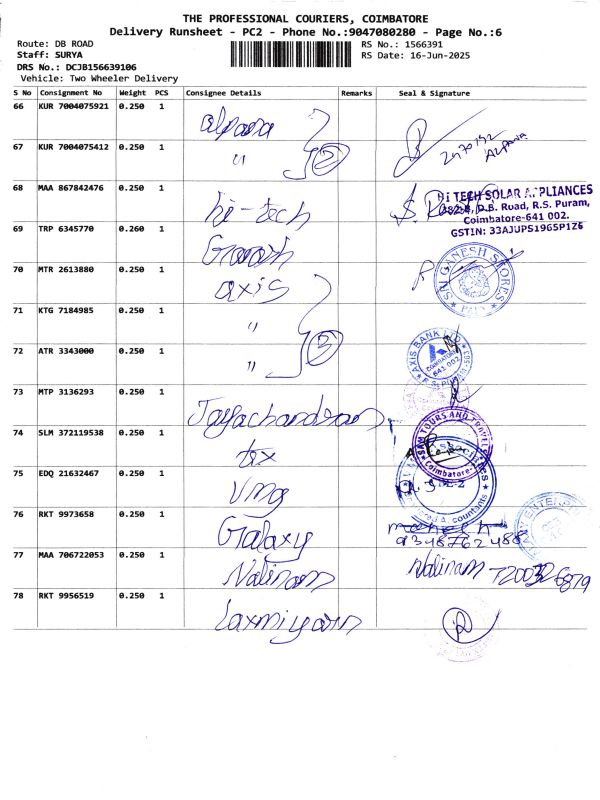 THE PROFESSIONAL COURIERS, COIMBATORE
Delivery Runsheet - PC2 - Phone No.:9047080280 - Page No.:6
Route: DB ROAD
RS No.: 1566391
Staff: SURYA
RS Date: 16-Jun-2025
DRS No.: DCJB156639106
Vehicle: Two Wheeler Delivery
S No Consignment No Weight PCS Consignee Details Remarks Seal & Signature
66 KUR 7004075921 0.250 1 alpana
67 KUR 7004075412 0.250 1 " 2 ALPANA
68 MAA 867842476 0.250 1 hi-tech
Hi TECH SOLAR APPLIANCES
D.B. Road, R.S. Puram,
Coimbatore-641 002.
GSTIN: 33AJUPS1965P1Z6
69 TRP 6345770 0.260 1 Ganesh
SRI GANESH STORES
70 MTR 2613880 0.250 1 axis
71 KTG 7184985 0.250 1 "
72 ATR 3343000 0.250 1 " 3
AXIS BANK LTD
COIMBATORE
641 002
73 MTP 3136293 0.250 1 Jayachandran
74 SLM 372119538 0.250 1 tex
TOURS AND TRAVELS
Coimbatore-2
75 EDQ 21632467 0.250 1 VMG
Associates
76 RKT 9973658 0.250 1 Galaxy
9348762488
77 MAA 706722053 0.250 1 Nalinam Nalinam
78 RKT 9956519 0.250 1 Laxmi yarn